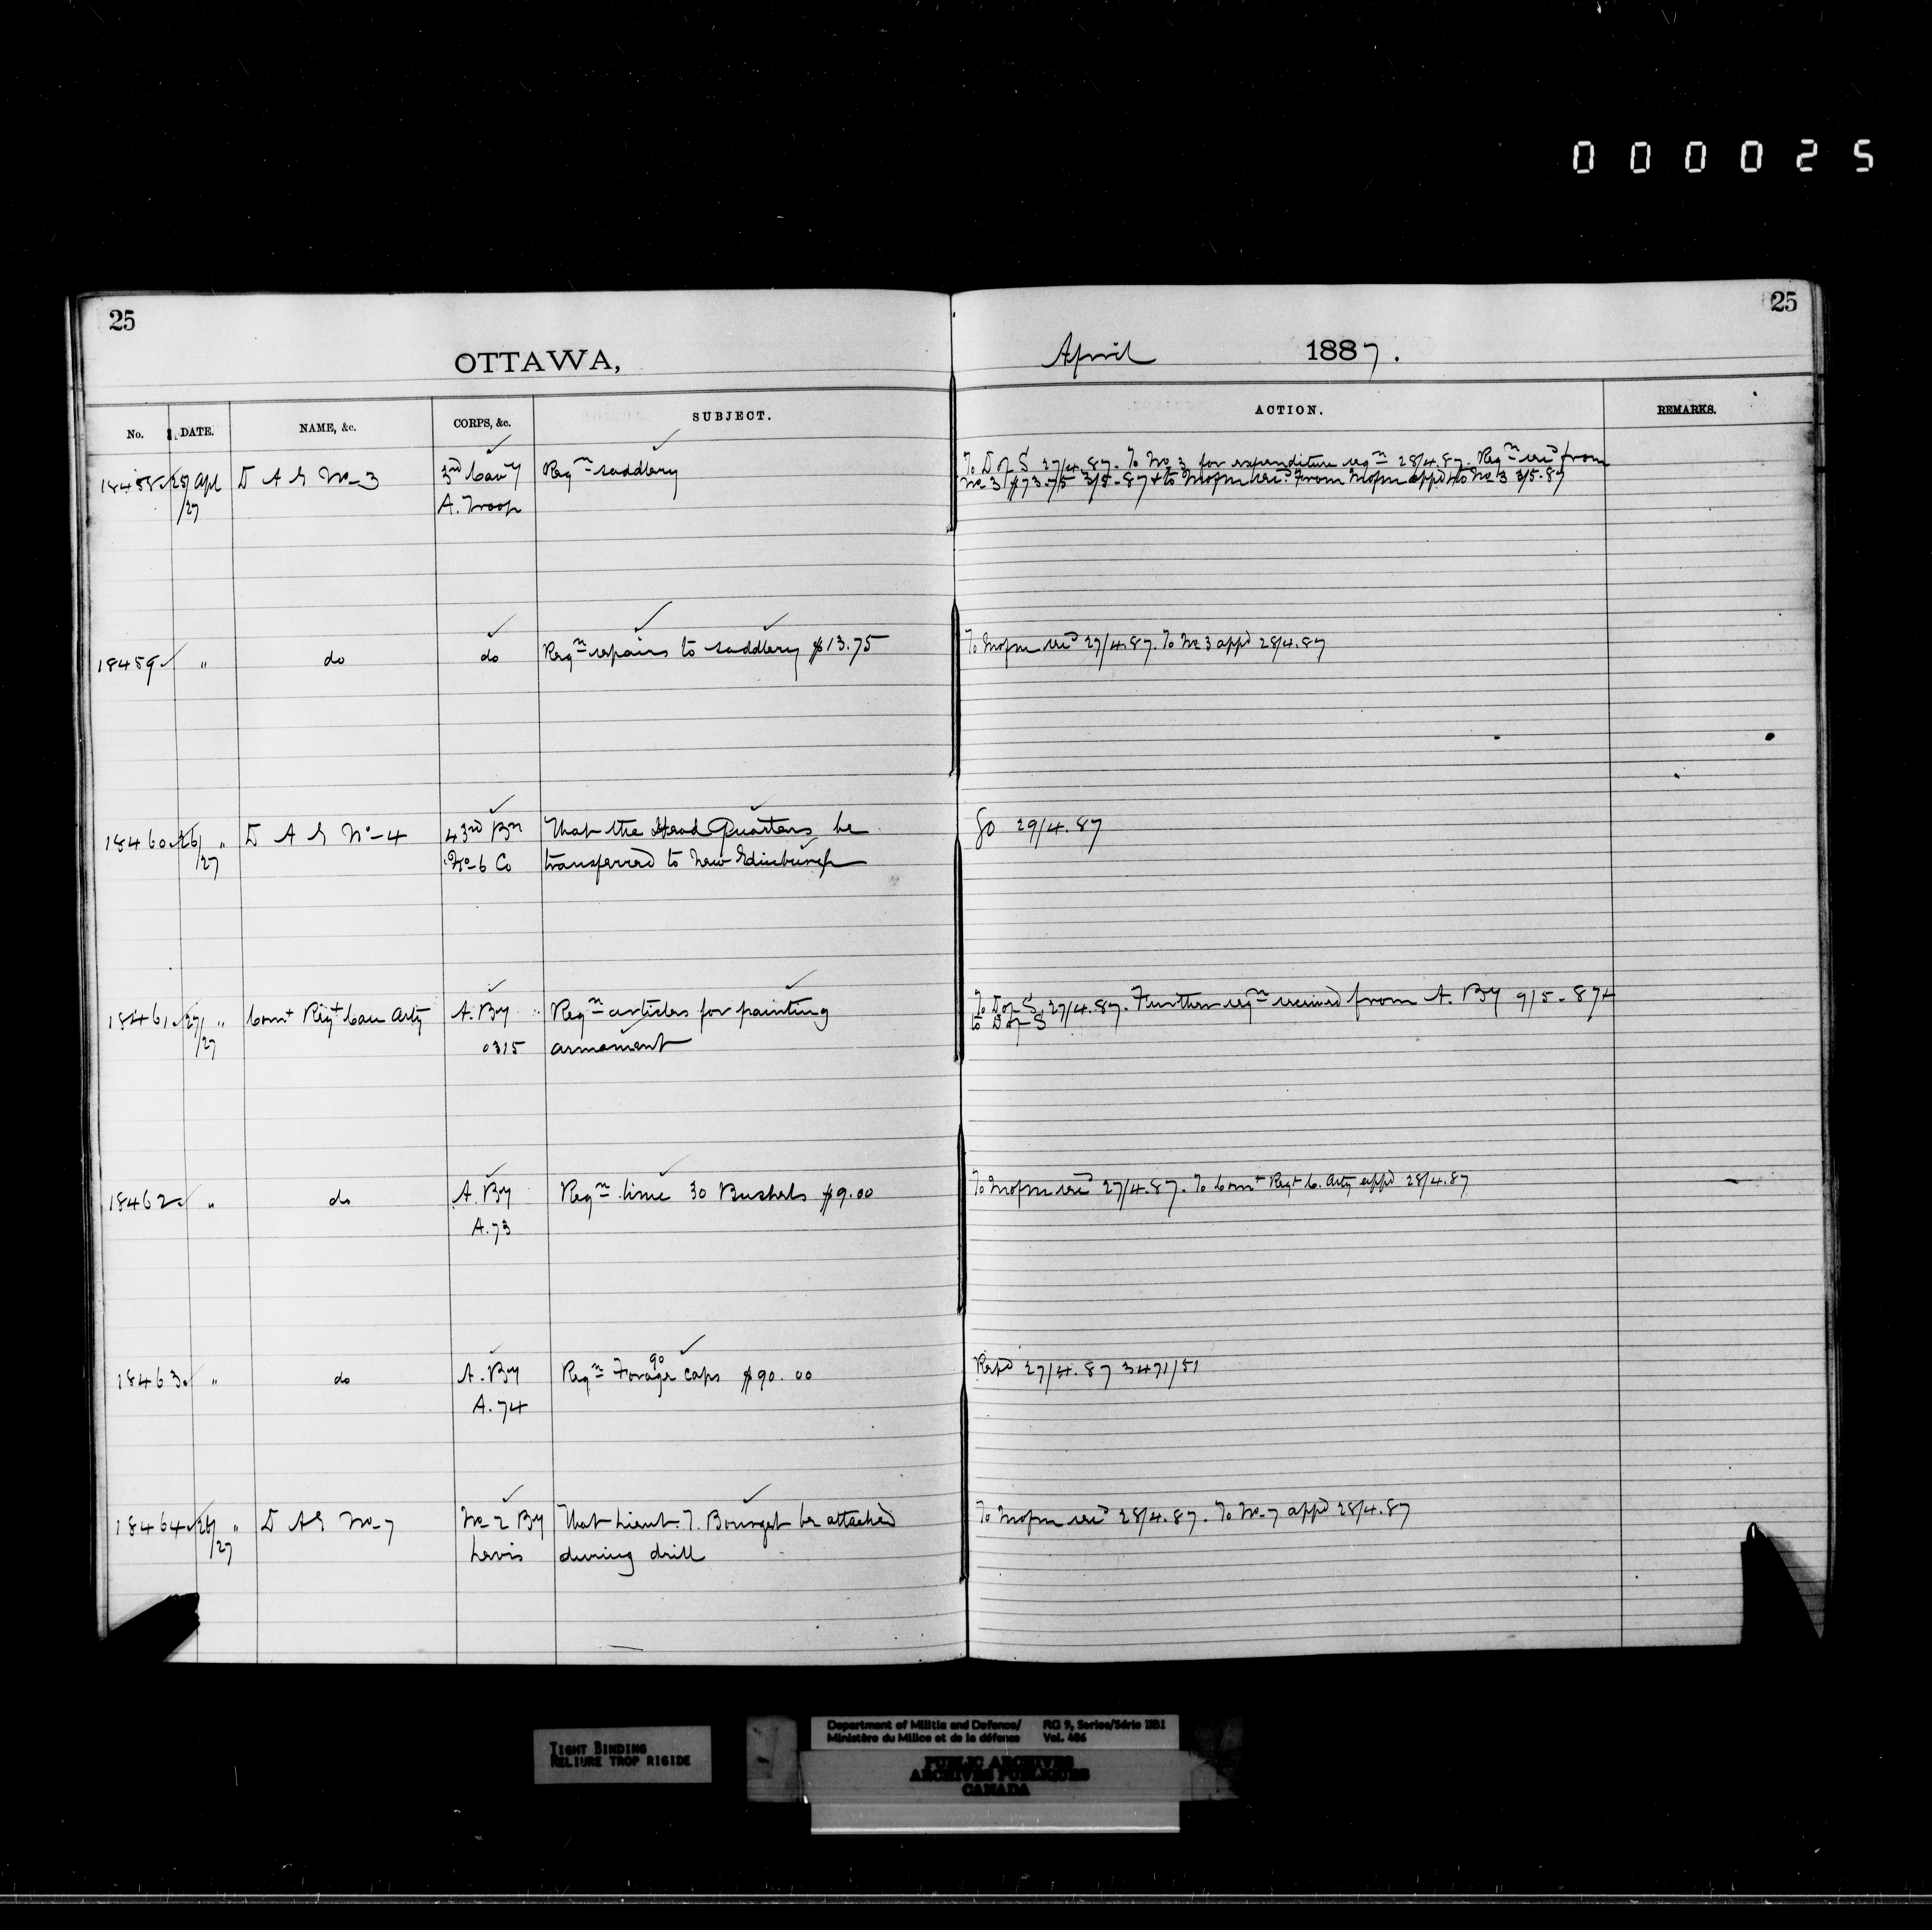 000025
25
25
OTTAWA,
April 1887.
No. DATE. NAME, &c. CORPS, &c. SUBJECT. ACTION. REMARKS.
18458 25/ Apl D A G No 3 3rd Cavy Reqn saddlery To D of S 27/4.87. To No 3 for expenditure reqn 28/4.87. Reqn recd from
/27 A. Troop No 3 $73.75 3/5-87 + to Mofm rec? From Mofm appd + to No 3 3/5.87
18459 " do do Reqn repairs to saddlery $13.75 To Mofm recd 27/4.87. To No 3 appd 28/4.87
18460 26/ " D A G No-4 43rd Bn That the Head Quarters be Go 29/4.87
/27 No-6 Co transferred to New Edinburgh
18461 27/ " Comt Regt Can Arty A. By Reqn articles for painting To D of S. 27/4.87. Further reqn received from A. By 9/5-87 +
/27 0315 armament to D of S
18462 " do A. By Reqn lime 30 Bushels $9.00 To Mofm recd 27/4.87. To Comt Regt C. Arty appd 28/4.87
A.73
18463 " do A. By Reqn 90 Forage caps $90.00 Repd 27/4.87 3471/51
A.74
18464 26/ " D A G No-7 No-2 By That Lieut. T. Bourget be attached To Mofm recd 28/4.87. To No-7 appd 28/4.87
/27 Levis during drill
TIGHT BINDING
RELIURE TROP RIGIDE
Department of Militia and Defence/ RG 9, Series/Série IIB1
Ministère du Milice et de la défense Vol. 406
PUBLIC ARCHIVES
ARCHIVES PUBLIQUES
CANADA